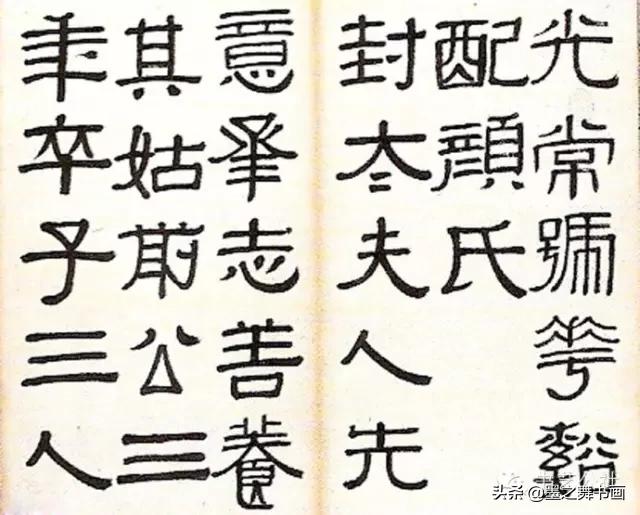 光常號華谿
配顏氏
封太夫人先
意承志善養
其姑前公三
年卒子三人
头条 @墨之舞书画